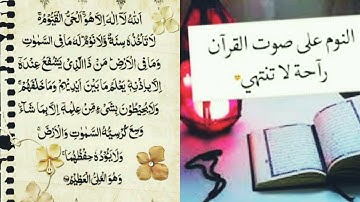 اللَّهُ لَا إِلَٰهَ إِلَّا هُوَ الْحَيُّ الْقَيُّومُ
لَا تَأْخُذُهُ سِنَةٌ وَلَا نَوْمٌ لَهُ مَا فِي السَّمَٰوَٰتِ
وَمَا فِي الْأَرْضِ مَنْ ذَا الَّذِي يَشْفَعُ عِنْدَهُ
إِلَّا بِإِذْنِهِ يَعْلَمُ مَا بَيْنَ أَيْدِيهِمْ وَمَا خَلْفَهُمْ
وَلَا يُحِيطُونَ بِشَيْءٍ مِنْ عِلْمِهِ إِلَّا بِمَا شَاءَ
وَسِعَ كُرْسِيُّهُ السَّمَٰوَٰتِ وَالْأَرْضَ
وَلَا يَئُودُهُ حِفْظُهُمَا
وَهُوَ الْعَلِيُّ الْعَظِيمُ
النوم على صوت القرآن
رآحة لا تنتهي